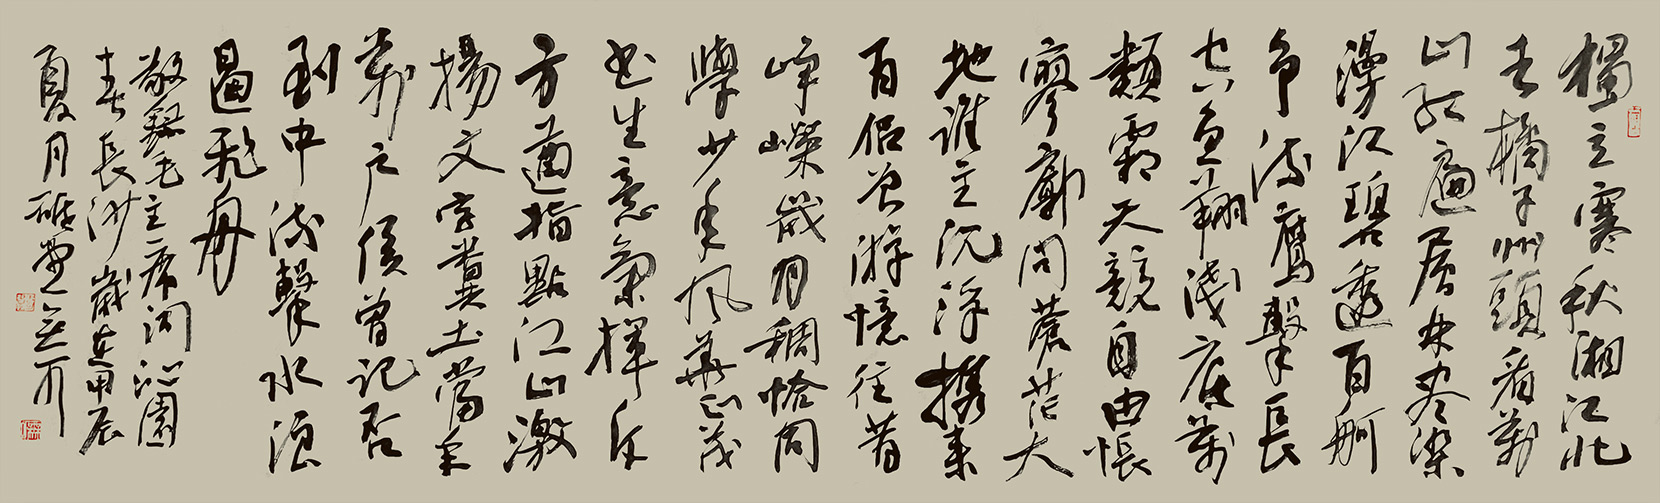 獨立寒秋湘江北
去橘子洲頭看萬
山红遍層林尽染
漫江碧透百舸
争流鷹擊長
空魚翔淺底萬
類霜天競自由悵
寥廓問蒼茫大
地誰主沉浮携来
百侣曾游憶往昔
崢嶸歲月稠恰同
學少年風華正茂
书生意氣揮斥
方遒指點江山激
揚文字糞土當年
萬户侯曾記否
到中流擊水浪
遏飛舟
敬録毛主席詞沁園
春長沙歲在甲辰
夏月